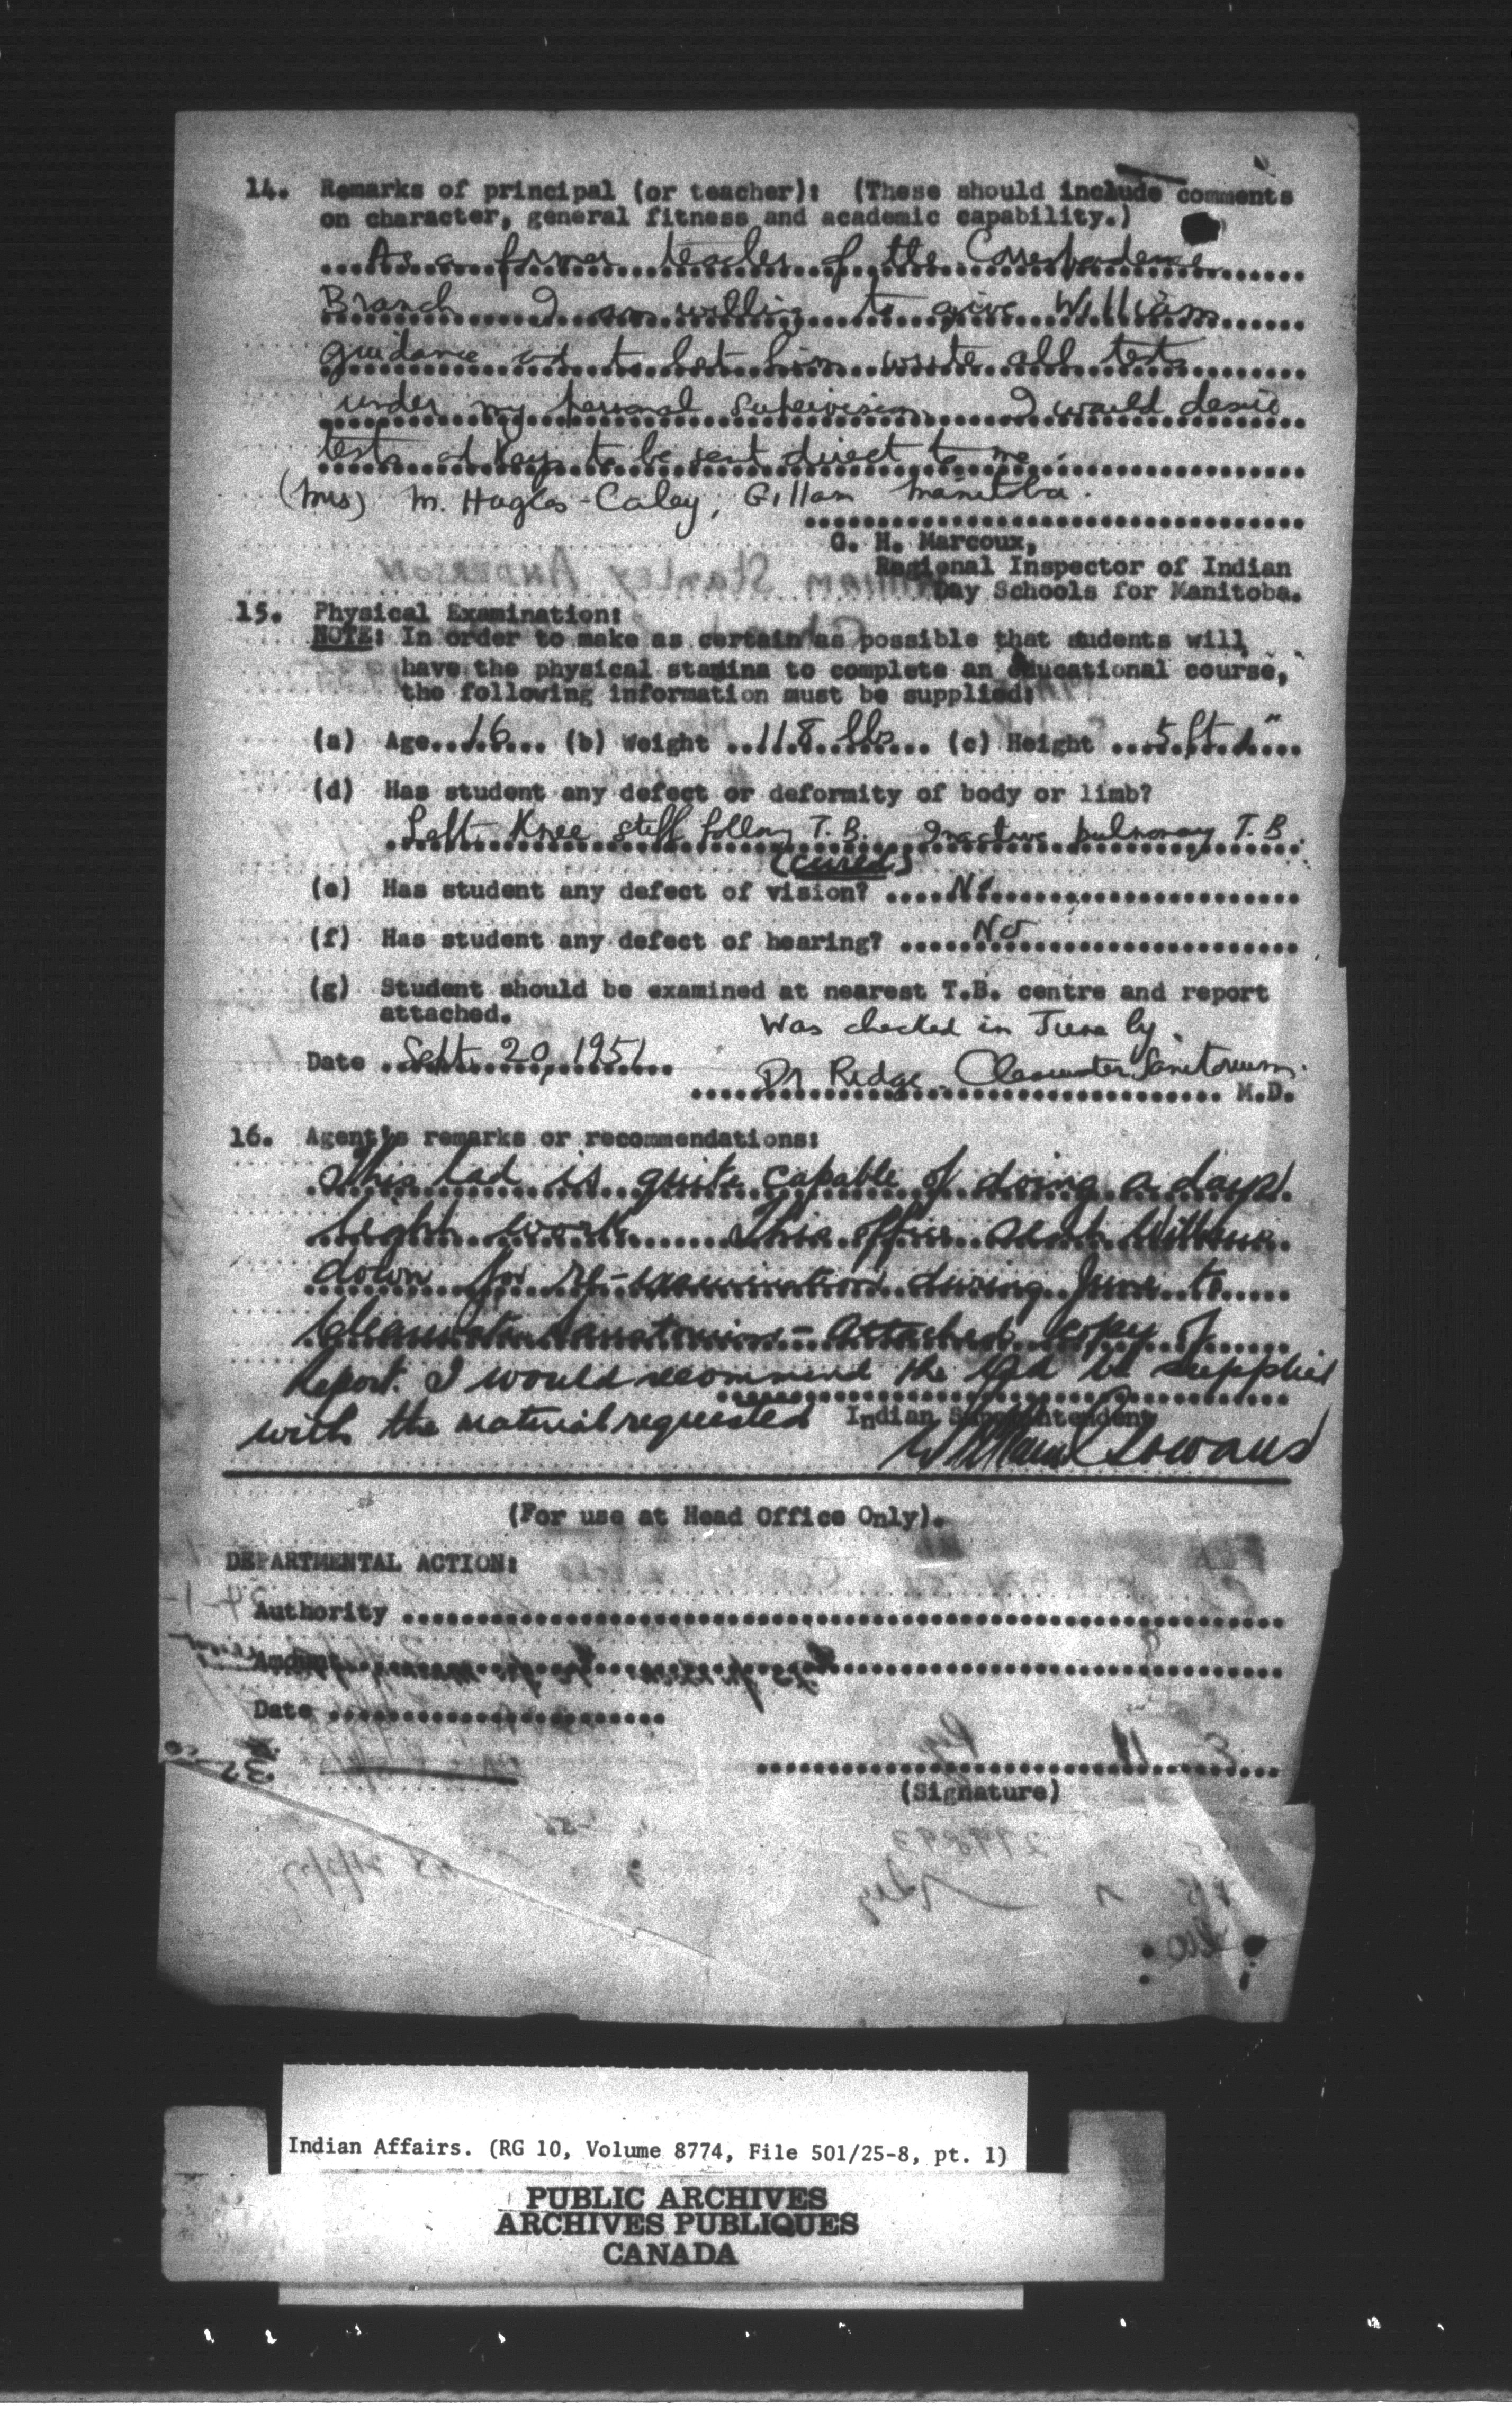 14. Remarks of principal (or teacher): (These should include comments
on character, general fitness and academic capability.)
As a former teacher of the Correspondence
Branch I am willing to give William
guidance and to let him write all tests
under my personal supervision. I would desire
tests and Keys to be sent direct to me.
(Mrs) M. Hughes-Caley, Gillam Manitoba.
G. H. Marcoux,
Regional Inspector of Indian
Day Schools for Manitoba.
15. Physical Examination:
NOTE: In order to make as certain as possible that students will
have the physical stamina to complete an educational course,
the following information must be supplied:
(a) Age 16 (b) Weight 118 lbs (c) Height 5 ft 1"
(d) Has student any defect or deformity of body or limb?
Left Knee stiff following T.B. Inactive pulmonary T.B.
(cured)
(e) Has student any defect of vision? No
(f) Has student any defect of hearing? No
(g) Student should be examined at nearest T.B. centre and report
attached.
Was checked in June by
Date Sept. 20, 1951
Dr Ridge Clearwater Sanitorium.
M.D.
16. Agent's remarks or recommendations:
This lad is quite capable of doing a days
light work. This office sent William
down for re-examination during June to
Clearwater Sanatorium - Attached copy of
Report. I would recommend the lad be supplied
with the material requested
Indian Superintendent
William Gowans
(For use at Head Office Only).
DEPARTMENTAL ACTION:
Authority
Amount
Date
(Signature)
Indian Affairs. (RG 10, Volume 8774, File 501/25-8, pt. 1)
PUBLIC ARCHIVES
ARCHIVES PUBLIQUES
CANADA